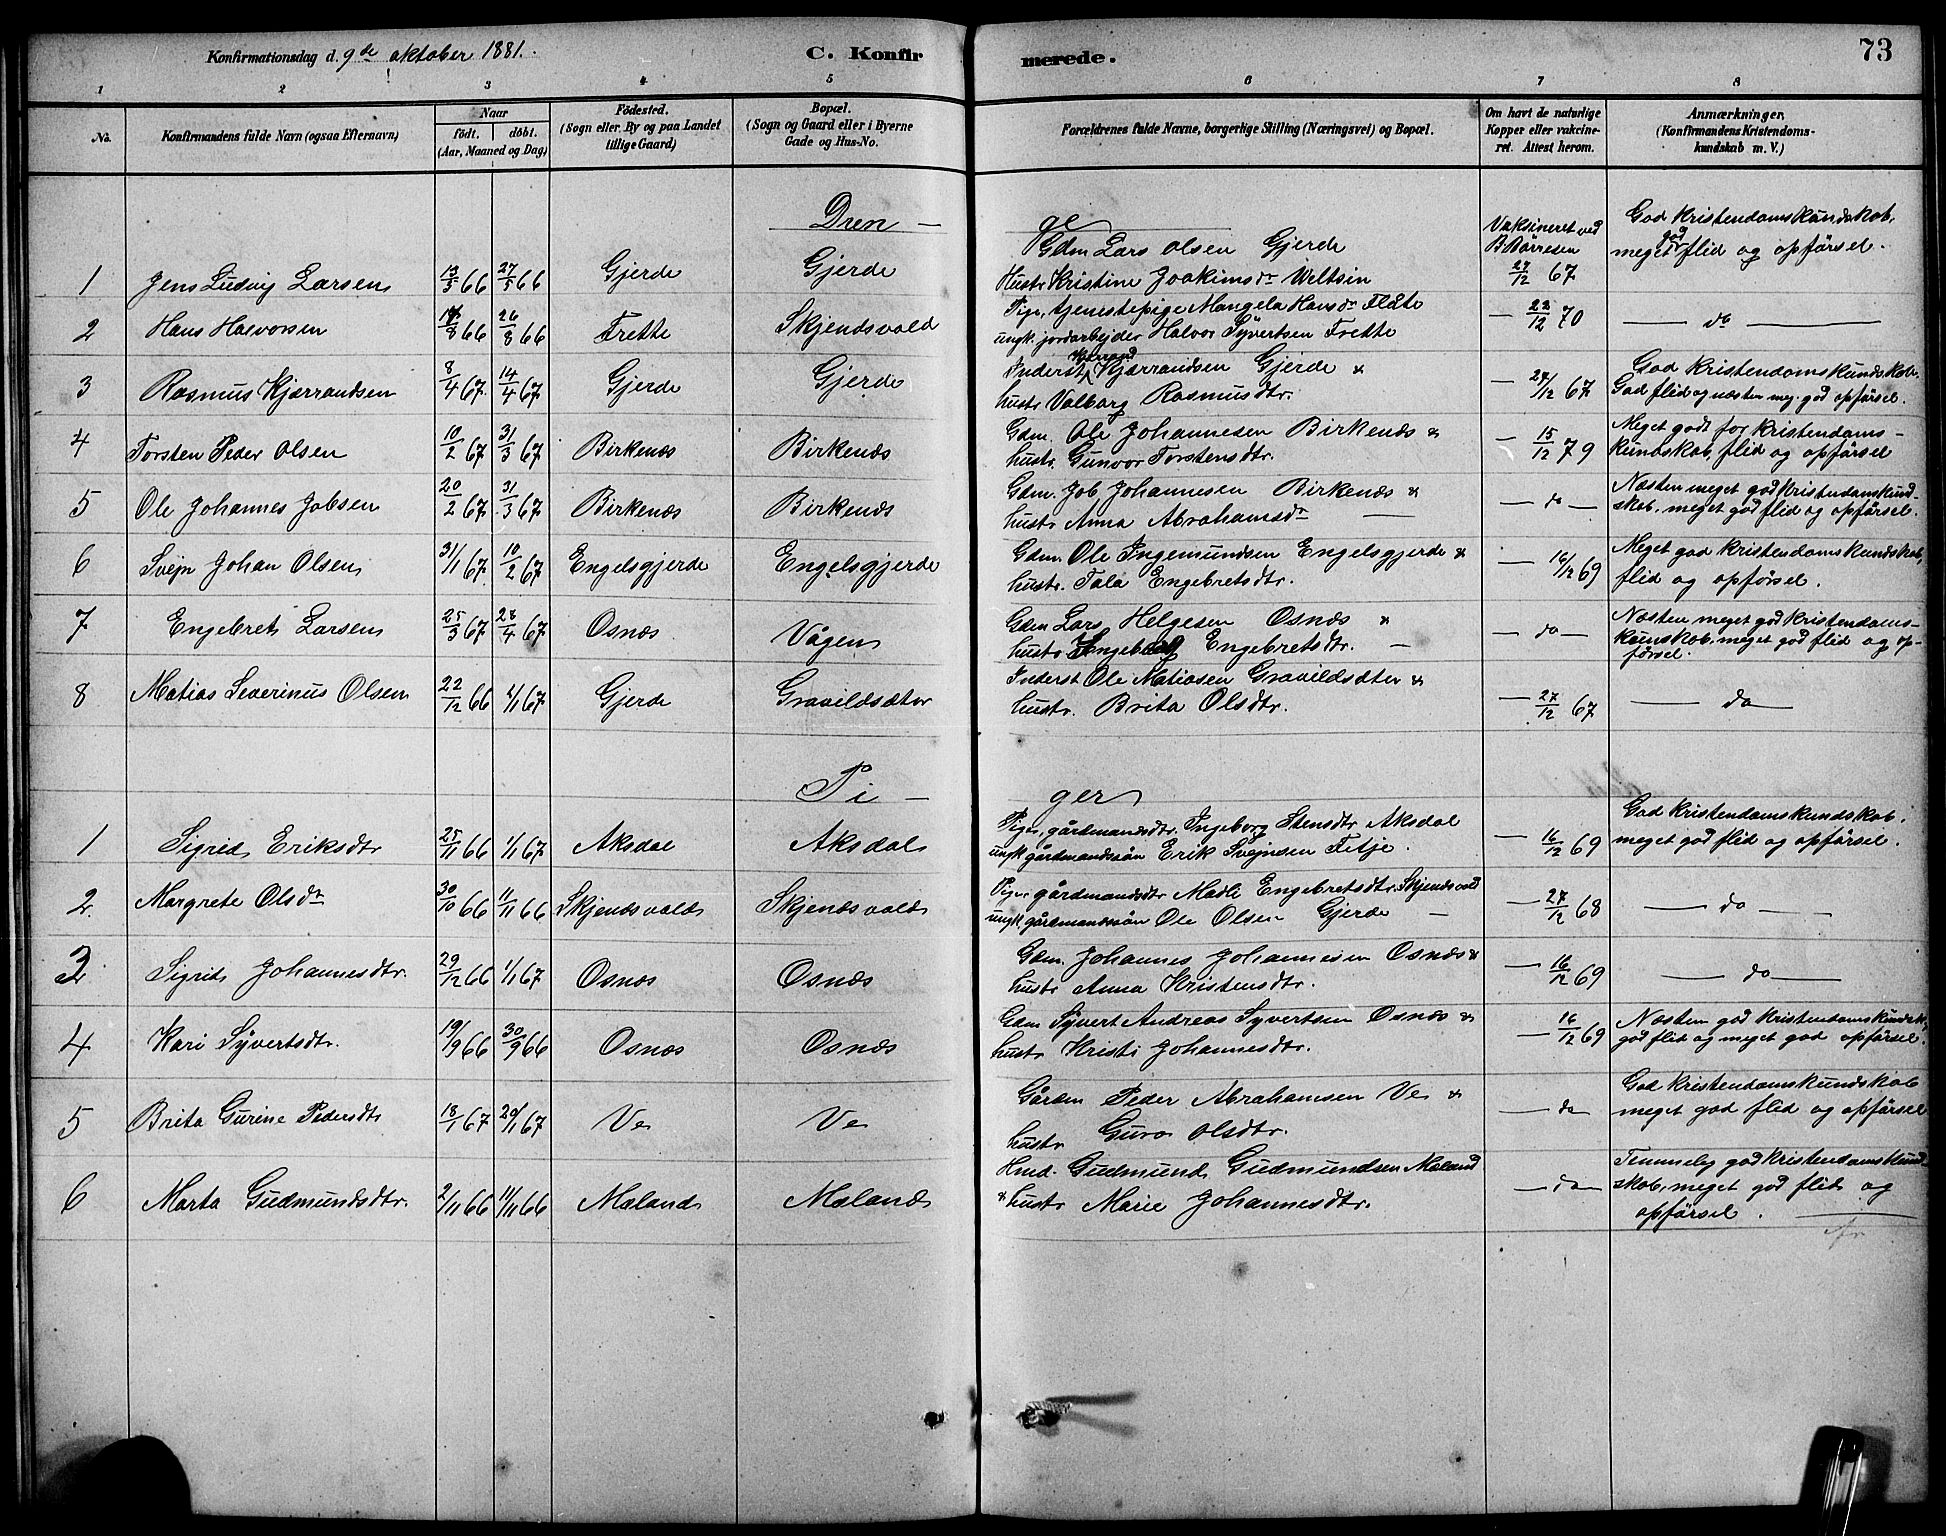 Konfirmationsdag d. 9de oktober 1881. C. Konfirmerede. 73
1 2 3 4 5 6 7 8
No. Konfirmandens fulde Navn (ogsaa Efternavn) Naar født. døbt. (Aar, Maaned og Dag) Fødested. (Sogn eller By og paa Landet tillige Gaard) Bopæl. (Sogn og Gaard eller i Byerne Gade og Hus-No. Forældrenes fulde Navne, borgerlige Stilling (Næringsvei) og Bopæl. Om havt de naturlige Kopper eller vakcineret. Attest herom. Anmærkninger, (Konfirmandens Kristendomskundskab m. V.)
Drenge
1 Jens Ludvig Larsen 13/5 66 27/5 66 Gjerde Gjerde Gdm Lars Olsen Gjerde Hustr Kristine Joakimsdr Weltsin Vaksineret ved B Børresen 27/12 67 God kristendomskundskob, meget god flid og opførsel.
2 Hans Halvorsen 14/8 66 26/8 66 Frette Skjendsvold Pige, tjenestepige Mangela Hansdr Flåte ungk. jordarbejder Halvor Syvertsen Frette — 22/12 70 — do —
3 Rasmus Kjærrandsen 8/4 67 14/4 67 Gjerde Gjerde Inderst Kjærrand Kjærrandsen Gjerde & hustr Valborg Rasmusdtr. — 27/12 67 God kristendomskundskob. God flid og næsten meg. god opførsel.
4 Torsten Peder Olsen 10/2 67 31/3 67 Birkenæs Birkenæs Gdm. Ole Johannesen Birkenæs & hustr. Gunvor Torstensdtr. — 15/12 79 Meget godt for kristendomskundskob, flid og opførsel
5 Ole Johannes Jobsen 20/2 67 31/3 67 Birkenæs Birkenæs Gdm. Job Johannesen Birkenæs & hustr Anna Abrahamsdr — — do — Næsten meget god kristendomskundskob, meget god flid og opførsel.
6 Svejn Johan Olsen 31/1 67 10/2 67 Engelsgjerde Engelsgjerde Gdm. Ole Ingemundsen Engelsgjerde & hustr. Tala Engebretsdtr. — 16/12 69 Meget god kristendomskundskob, flid og opførsel.
7 Engebret Larsen 25/3 67 28/4 67 Osnæs Vågen Gdm Lars Helgesen Osnæs & hustr Ingeborg Engebretsdtr. — — do — Næsten meget god kristendomskunskob, meget god flid og opførsel.
8 Matias Severinus Olsen 22/12 66 1/1 67 Gjerde Gravildsæter Inderst Ole Matiasen Gravildsæter & hustr. Brita Olsdtr. — 27/12 67 — do —
Piger
1 Sigrid Eriksdtr 25/11 66 1/1 67 Aksdal Aksdal Pige, gårdmandsdtr. Ingeborg Stensdtr Aksdal ungk gårdmandssøn Erik Svejnsen Fitje. — 16/12 69 God kristendomskundskob, meget god flid og opførsel.
2. Margrete Olsdr 30/10 66 11/11 66 Skjendsvold Skjendsvold Pige gårdmandsdtr Madli Engebretsdtr. Skjendsvold ungk. gårdmandssøn Ole Olsen Gjerde — — 27/12 68 — do —
3 Sigrid Johannesdtr. 29/12 66 1/1 67 Osnæs Osnæs Gdm. Johannes Johannesen Osnæs & hustr Anna Kristensdtr. — 16/12 69 — do —
4 Kari Syvertsdtr. 19/9 66 30/9 66 Osnæs Osnæs Gdm Syvert Andreas Syvertsen Osnæs & hustr Kristi Johannesdtr. — 16/12 69 Næsten god kristendomskundsk., god flid og meget god opførsel.
5 Brita Gurine Pedersdtr 18/1 67 20/1 67 Ve Ve Gårdm Peder Abrahamsen Ve & hustr Guro Olsdtr. — do God kristendomskundskob meget god flid og opførsel
6 Marta Gudmundsdtr. 2/11 66 14/11 66 Mæland Mæland Hmd. Gudmund Gudmundsen Mæland & hustr Marie Johannesdtr. — do — Temmelig god kristendomskundskob, meget god flid og opførsel.